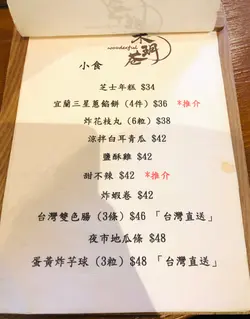 木珊巷
wonderful
小食
芝士年糕 $34
宜蘭三星蔥餡餅 (4件) $36 *推介
炸花枝丸 (6粒) $38
涼拌白耳青瓜 $42
鹽酥雞 $42
甜不辣 $42 *推介
炸蝦卷 $42
台灣雙色腸 (3條) $46 「台灣直送」
夜市地瓜條 $48
蛋黃炸芋球 (3粒) $48 「台灣直送」